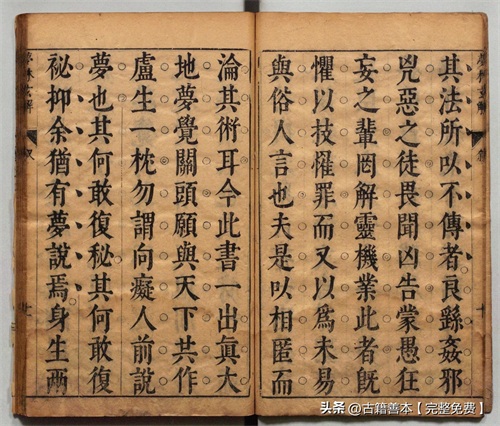 其法所以不傳者良繇姦邪
兇惡之徒畏聞凶告蒙愚狂
妄之輩罔解靈機業此者旣
懼以技罹罪而又以爲未易
與俗人言也夫是以相匿而
淪其術耳今此書一出眞大
地夢覺關頭願與天下共作
盧生一枕勿謂向癡人前說
夢也其何敢復秘其何敢復
祕抑余猶有夢說焉身生兩
头条 @古籍善本【完整免费】